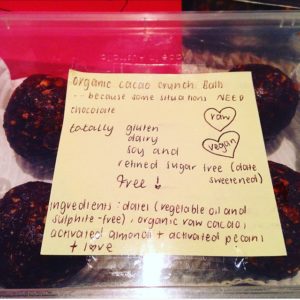 organic cacao crunch Balls
.. because some situations NEED
chocolate
raw
totally gluten
dairy
vegan
soy and
refined sugar free (date
sweetened)
free!
ingredients: dates (vegetable oil and
sulphite-free), organic raw cacao,
activated almonds + activated pecans
+ love